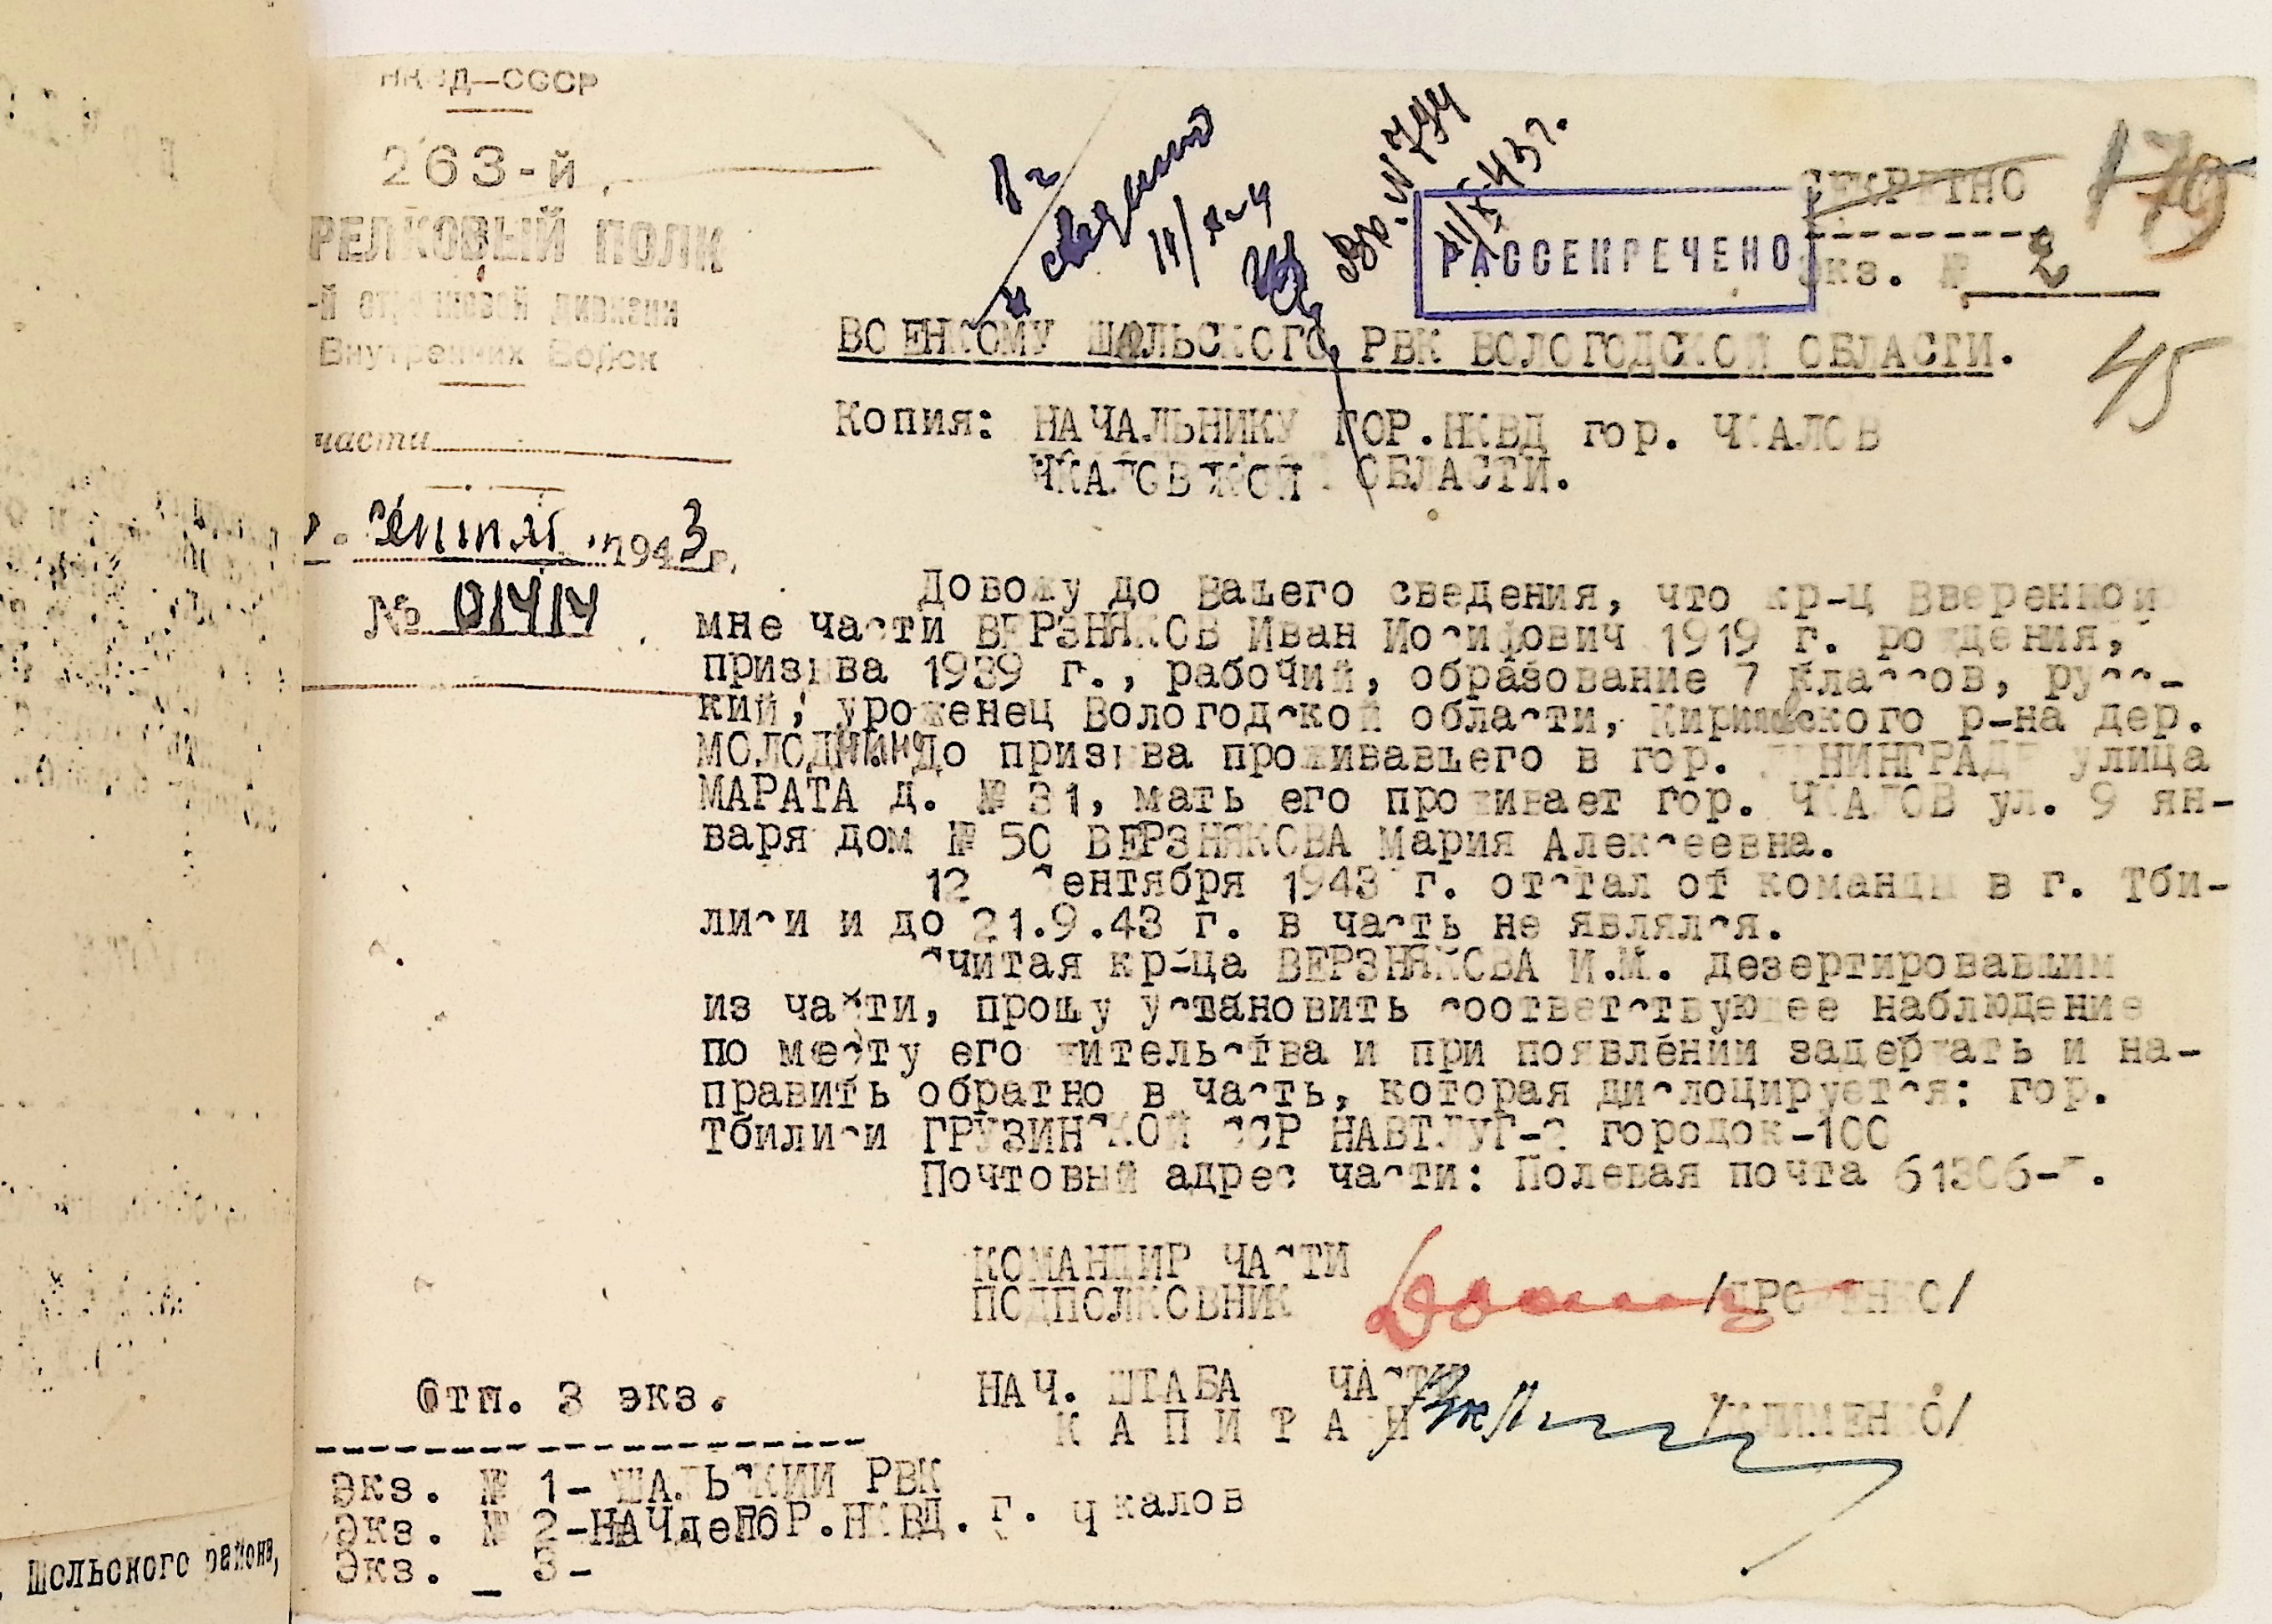 НКВД—СССР
263-й
РЕЛКОВЫЙ ПОЛК
-й стрелковой дивизии
Внутренних Войск
части
1943 г.
№ 01414
Вх. N 794
РАССЕКРЕЧЕНО
СЕКРЕТНО
Экз. № 2
179
45
ВОЕНКОМУ ШОЛЬСКОГО РВК ВОЛОГОДСКОЙ ОБЛАСТИ.
Копия: НАЧАЛЬНИКУ ГОР.НКВД гор. ЧКАЛОВ
ЧКАЛОВЖОЙ ОБЛАСТИ.
Довожу до Вашего сведения, что кр-ц Вверенной
мне части ВЕРЗНЯКОВ Иван Иосифович 1919 г. рождения,
призыва 1939 г., рабочий, образование 7 классов, русс-
кий, уроженец Вологодской области, Киришского р-на дер.
До призыва проживавшего в гор. ЛЕНИНГРАДЕ улица
МАРАТА д. № 31, мать его проживает гор. ЧКАЛОВ ул. 9 ян-
варя дом № 50 ВЕРЗНЯКОВА Мария Алексеевна.
12 Сентября 1943 г. отстал от команды в г. Тби-
лиси и до 21.9.43 г. в часть не являлся.
Считая кр-ца ВЕРЗНЯКОВА И.М. дезертировавшим
из части, прошу установить соответствующее наблюдение
по месту его жительства и при появлении задержать и на-
править обратно в часть, которая дислоцируется: гор.
Тбилиси ГРУЗИНСКОЙ ССР НАВТЛУГ-2 городок-100
Почтовый адрес части: Полевая почта 61306-
КОМАНДИР ЧАСТИ
ПОДПОЛКОВНИК
НАЧ. ШТАБА ЧАСТИ
К А П И Т А Н /КЛИМЕНКО/
Отп. 3 экз.
Экз. № 1- ШАЛЬСКИЙ РВК
Экз. № 2- ГОР.НКВД. г. Чкалов
Экз. _ 3-
Шольского района,